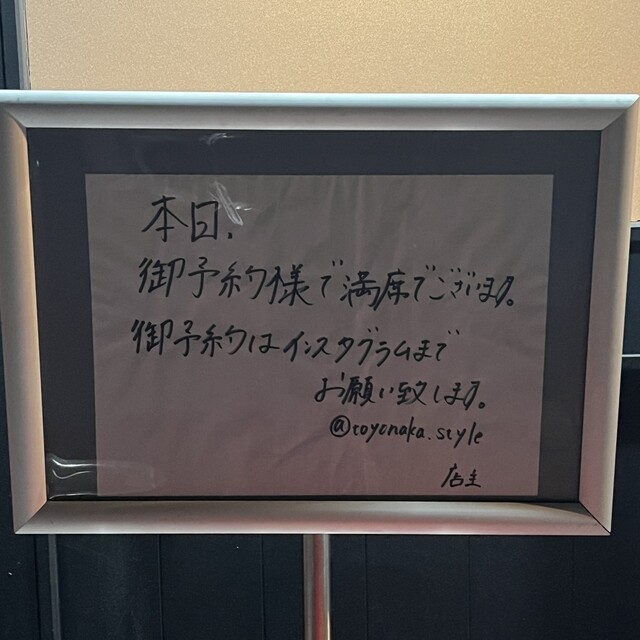 本日、
御予約様で満席でございます。
御予約はインスタグラムまで
お願い致します。
@toyonaka.style
店主